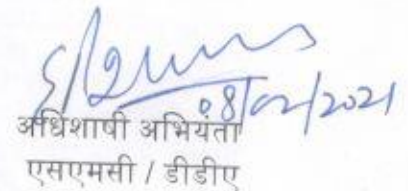 08/02/2021
अधिशाषी अभियंता
एसएमसी / डीडीए